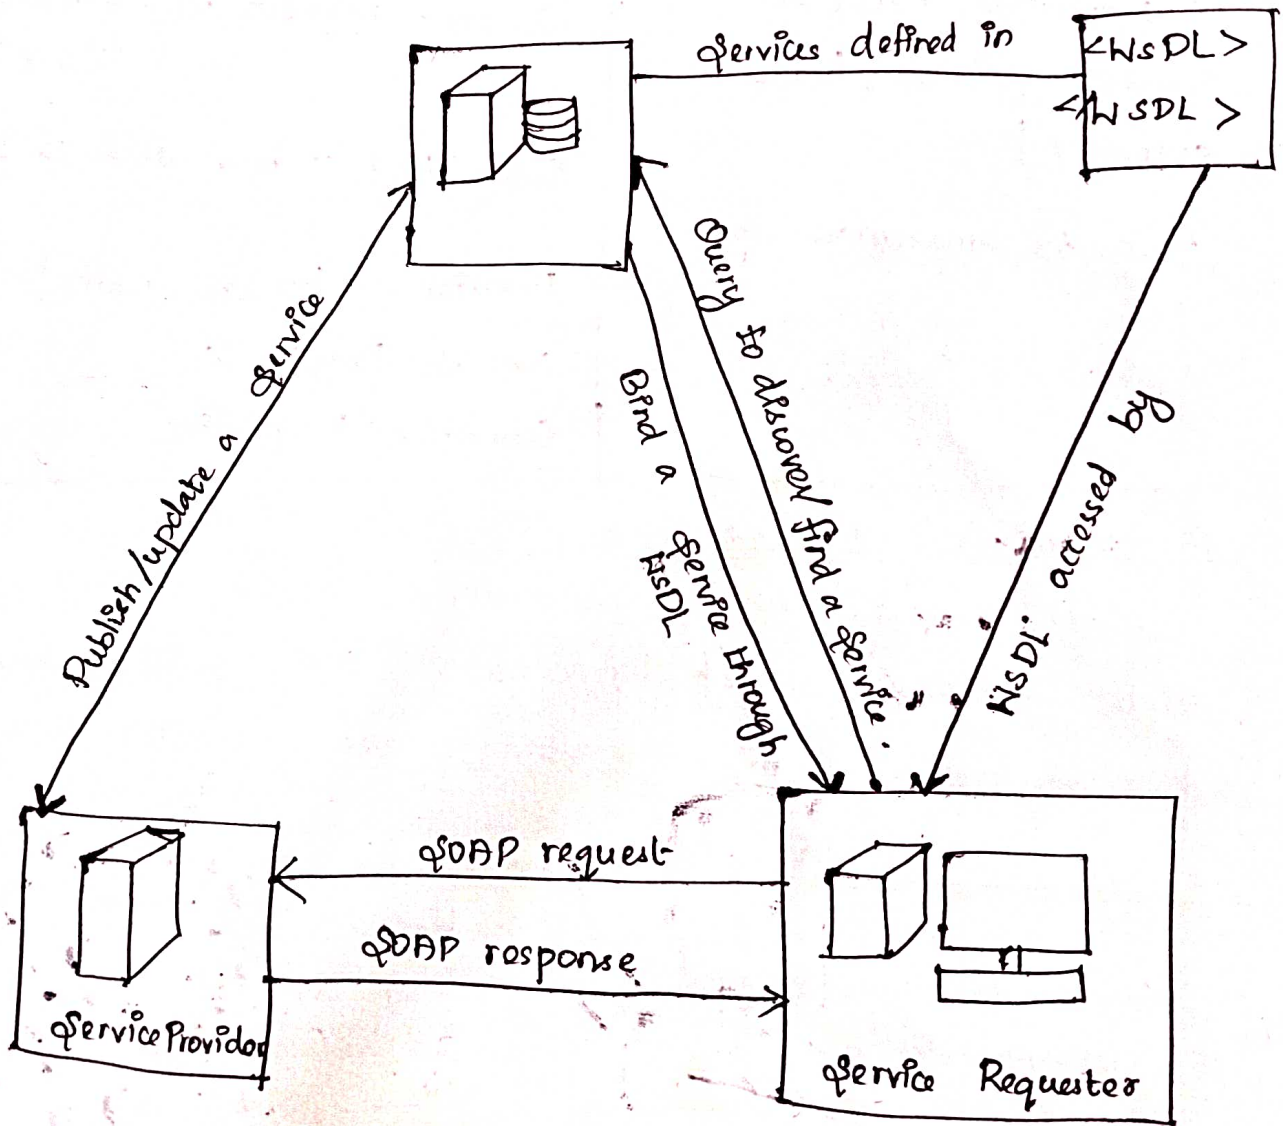 Services defined in
<WSDL>
</WSDL>
Publish/update a service
Query to discover/find a service.
Bind a service through
WSDL
WSDL accessed by
SOAP request
SOAP response
Service Provider
Service Requester